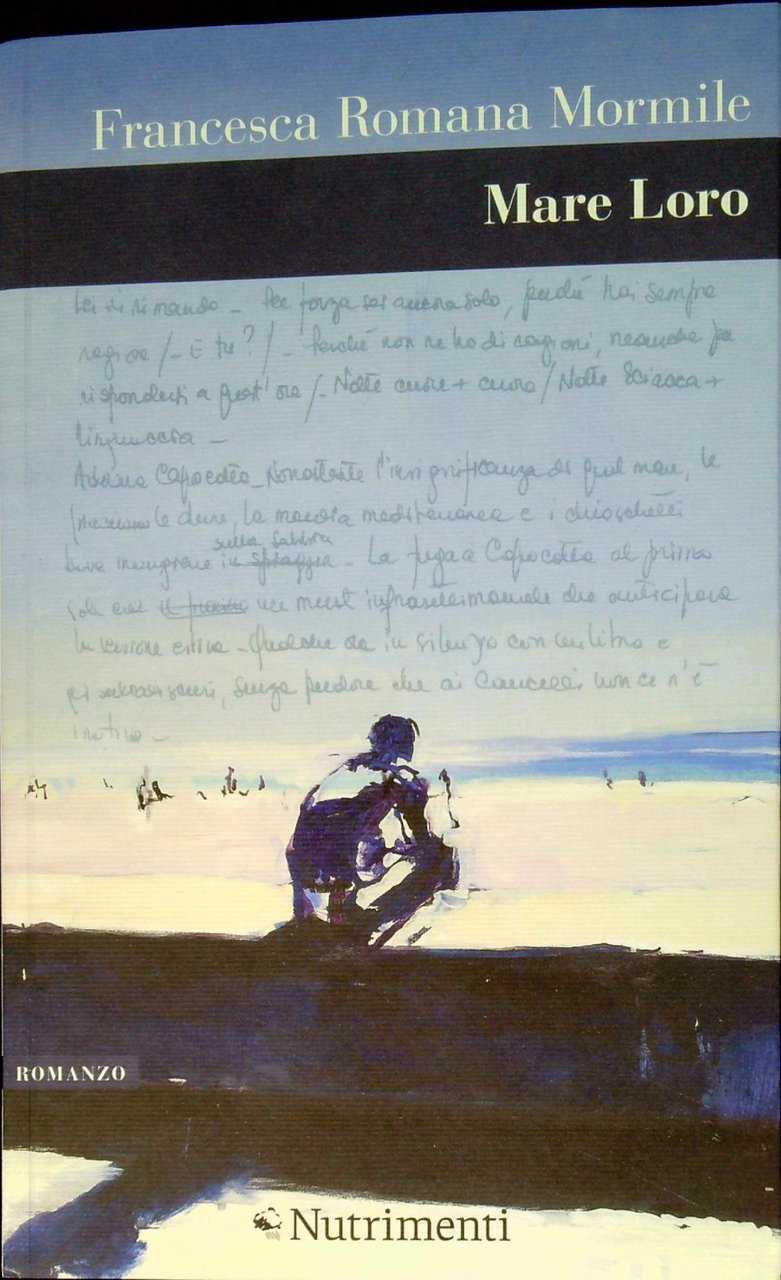 Francesca Romana Mormile
Mare Loro
Lei di rimando - Per forza sei ancora solo, perché hai sempre
ragione /- E tu? /- Perché non ne ho di ragioni, neanche per
risponderti a quest'ora /- Notte cuore + cuore / Notte Sciacca +
linguaccia -
Adorava Capocotta - Nonostante l'insignificanza di quel mare, le
piacevano le dune, la macchia mediterranea e i chioschetti
sulla sabbia
dove mangiare in spiaggia - La fuga a Capocotta al primo
sole era un must infrasettimanale che anticipava
la versione estiva - Qualche ora in silenzio con un libro e
gli, senza pudore che ai Cancelli non ce n'è
motivo -
ROMANZO
Nutrimenti